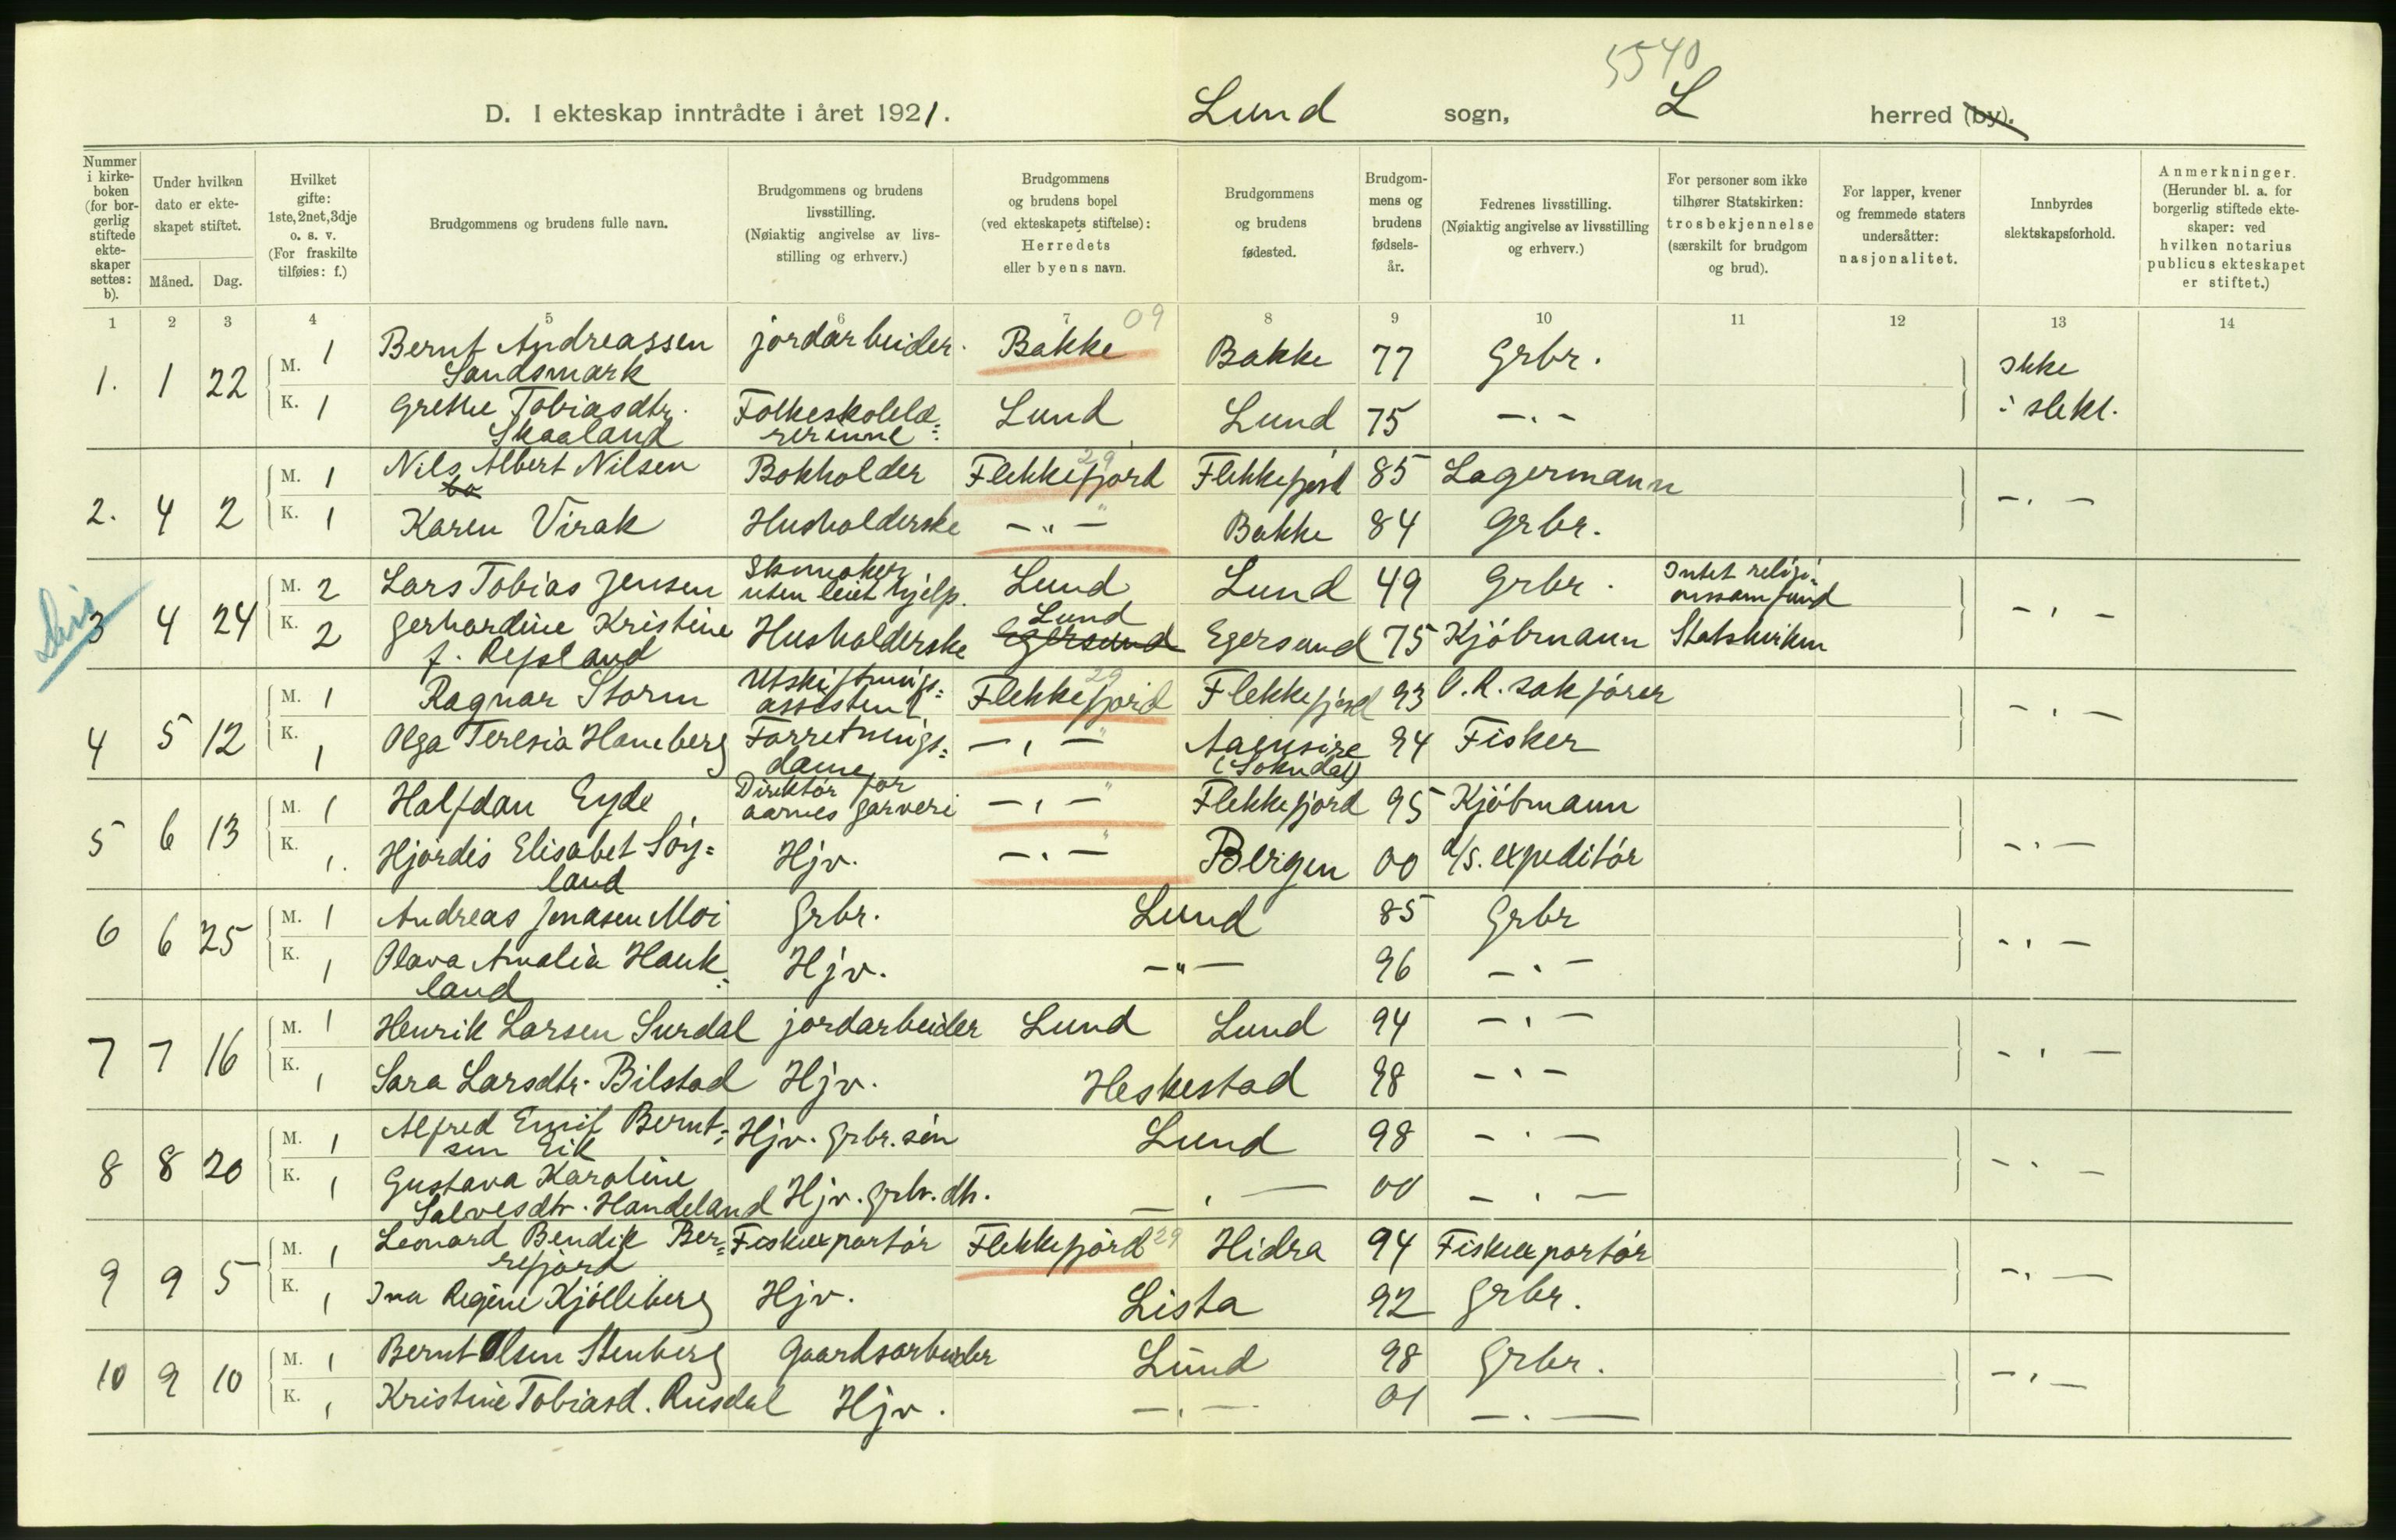 5540
D. I ekteskap inntrådte i året 1921. Lund sogn, L herred (by).
Nummer i kirkeboken (for borgerlig stiftede ekteskaper settes: b).
Under hvilken dato er ekteskapet stiftet.
Måned. Dag.
Hvilket gifte: 1ste, 2net, 3dje o. s. v. (For fraskilte tilføies: f.)
Brudgommens og brudens fulle navn.
Brudgommens og brudens livsstilling. (Nøiaktig angivelse av livsstilling og erhverv.)
Brudgommens og brudens bopel (ved ekteskapets stiftelse): Herredets eller byens navn.
Brudgommens og brudens fødested.
Brudgommens og brudens fødselsår.
Fedrenes livsstilling. (Nøiaktig angivelse av livsstilling og erhverv.)
For personer som ikke tilhører Statskirken: trosbekjennelse (særskilt for brudgom og brud).
For lapper, kvener og fremmede staters undersåtter: nasjonalitet.
Innbyrdes slektskapsforhold.
Anmerkninger. (Herunder bl. a. for borgerlig stiftede ekteskaper: ved hvilken notarius publicus ekteskapet er stiftet.)
1 2 3 4 5 6 7 8 9 10 11 12 13 14
1. 1 22 M. 1 Bernt Andreassen Sandsmark jordarbeider. Bakke 09 Bakke 77 Grbr. Ikke
K. 1 Grethe Tobiasdtr. Skaaland Folkeskolelæ= rerinne Lund Lund 75 -.- i slekt.
2. 4 2 M. 1 Nils Albert Nilsen Bokholder Flekkefjord 29 Flekkefjord 85 Lagermann -.-
K. 1 Karen Virak Husholderske -"- Bakke 84 Grbr.
3 4 24 M. 2 Lars Tobias Jensen Skomaker uten leiet hjelp. Lund Lund 49 Grbr. Intet religi= onssamfund -.-
K. 2 Gerhardine Kristine f. Refsland Husholderske Lund Egersund Egersund 75 Kjöbmann Statskirken
4 5 12 M. 1 Ragnar Storm Utskiftnings= assistent Flekkefjord 29 Flekkefjord 93 O.R. sakförer -.-
K. 1 Olga Teresia Haneberg Forretnings= dame -.- Aaensire (Sokndal) 94 Fisker
5 6 13 M. 1 Halfdan Eyde Direktör for aarnes garveri -.- Flekkefjord 95 Kjöbmann -.-
K. 1. Hjördis Elisabet Söy= land Hjv. -.- Bergen 00 d/s. expeditör
6 6 25 M. 1 Andreas Jonasen Moi Grbr. Lund 85 Grbr -.-
K. 1 Olava Amalia Hauk= land Hjv. -"- 96 -.-
7 7 16 M. 1 Henrik Larsen Surdal jordarbeider Lund Lund 94 -.- -.-
K. 1 Sara Larsdtr. Bilstad Hjv. Heskestad 98 -.-
8 8 20 M. 1 Alfred Emil Bernt= sen Eik Hjv. Grbr. sön Lund 98 -.- -.-
K. 1 Gustava Karoline Salvesdtr. Handeland Hjv. grbr. dtr. -.- 00 -.-
9 9 5 M. 1 Leonard Bendik Ber= refjord Fiskeexportör Flekkefjord 29 Hidra 94 Fiskeexportör -.-
K. 1 Ina Regine Kjölleberg Hjv. Lista 92 Grbr.
10 9 10 M. 1 Bernt Olsen Stenberg Gaardsarbeider Lund 98 Grbr. -.-
K. 1 Kristine Tobiasd. Rusdal Hjv. -.- 01 -.-